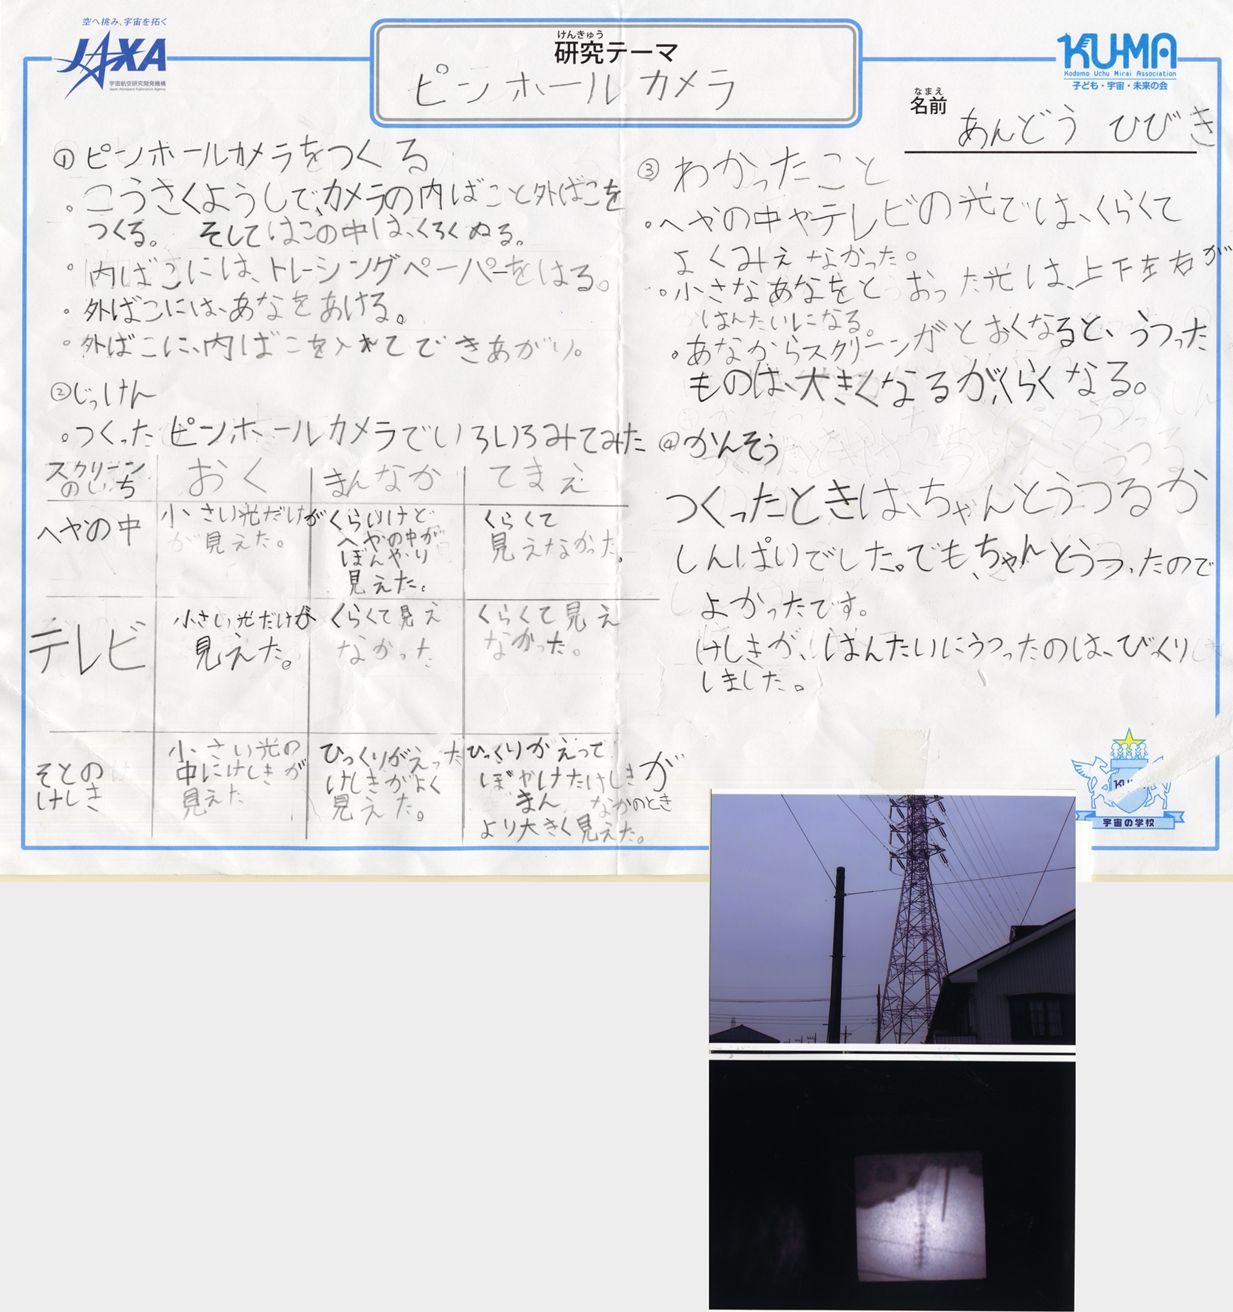 空へ挑み、宇宙を拓く
JAXA
宇宙航空研究開発機構
Japan Aerospace Exploration Agency
けんきゅう
研究テーマ
ピンホールカメラ
KU-MA
Kodomo Uchu Mirai Association
子ども・宇宙・未来の会
なまえ
名前
あんどう ひびき
①ピンホールカメラをつくる
。こうさくようしで、カメラの内ばこと外ばこを
つくる。 そしてはこの中は、くろくぬる。
・内ばこには、トレーシングペーパーをはる。
・外ばこには、あなをあける。
・外ばこに、内ばこを入れてできあがり。
②じっけん
。つくったピンホールカメラでいろいろみてみた
スクリーンのいち おく まんなか てまえ
へやの中
小さい光だけが
見えた。
くらいけど
へやの中が
ぼんやり
見えた。
くらくて
見えなかった。
テレビ
小さい光だけが
見えた。
くらくて見え
なかった
くらくて見え
なかった。
そとの
けしき
小さい光の
中にけしきが
見えた
ひっくりがえった
けしきがよく
見えた。
ひっくりがえって
ぼやけたけしきが
まんなかのとき
より大きく見えた。
③わかったこと
・へやの中やテレビの光では、くらくて
よくみえなかった。
。小さなあなをとおった光は、上下左右が
はんたいになる。
・あなからスクリーンがとおくなると、うつった
ものは、大きくなるが、くらくなる。
④かんそう
つくったときは、ちゃんとうつるか
しんぱいでした。でも、ちゃんとうつったので
よかったです。
けしきが、はんたいにうつったのは、びっくり
しました。
KU-MA
宇宙の学校